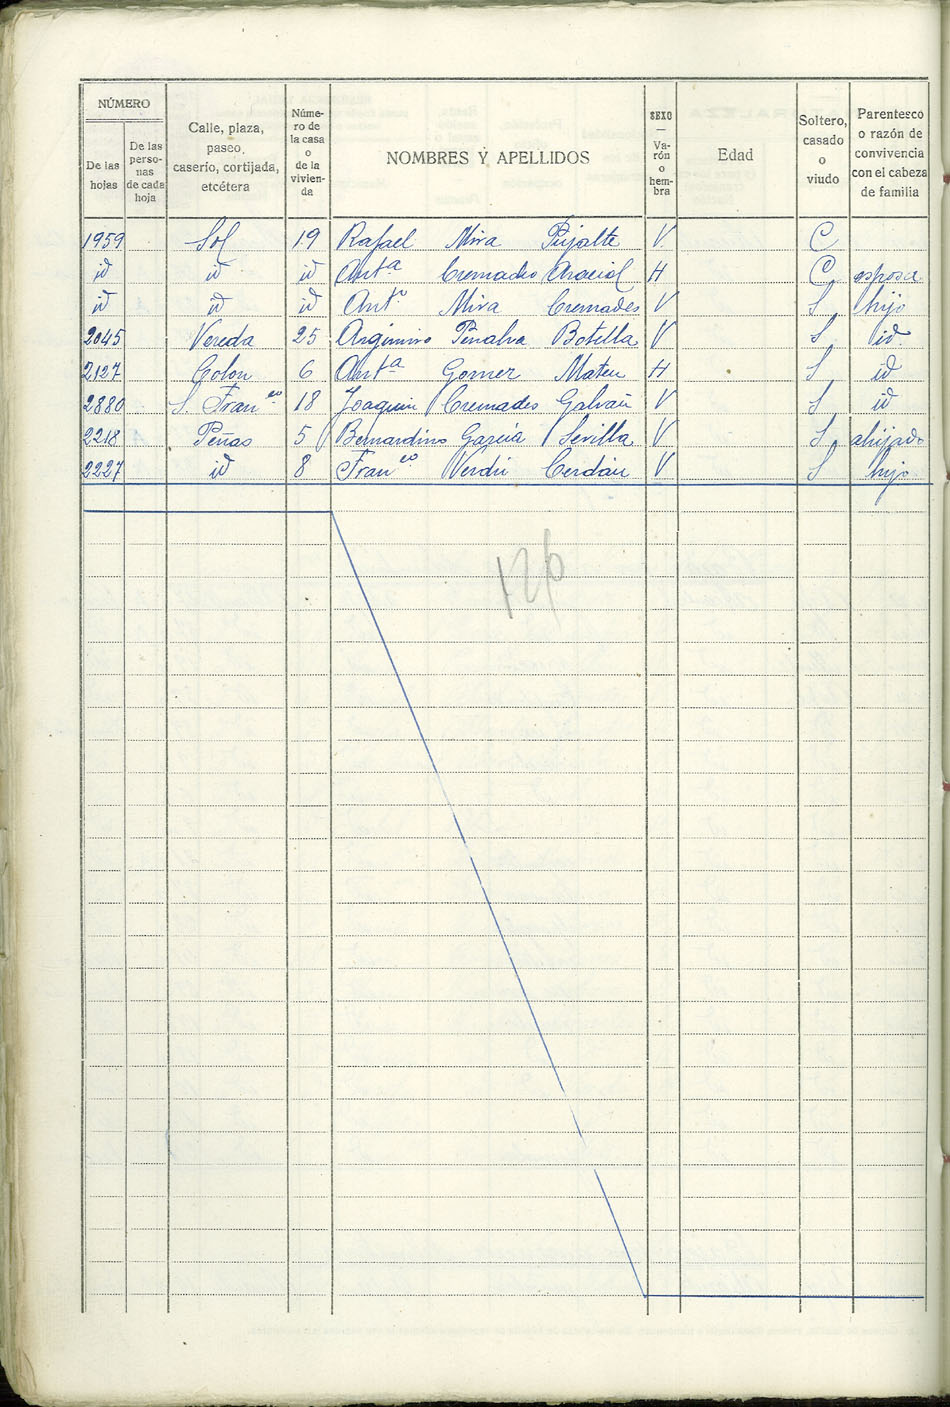 NÚMERO
De las hojas
De las perso-nas de cada hoja
Calle, plaza, paseo, caserío, cortijada, etcétera
Núme-ro de la casa o de la vivien-da
NOMBRES Y APELLIDOS
SEXO — Va-rón o hem-bra
Edad
Soltero, casado o viudo
Parentesco o razón de convivencia con el cabeza de familia
1959 Sol 19 Rafael Mira Pujalte V. C
id id id Antª Cremades H C esposa
id id id Antº Mira Cremades V S hijo
2045 Vereda 25 Argimiro Penalva Botella V S id.
2127 Colon 6 Antª Gomez Mateu H S id
2880 S. Franco 18 Joaquin Cremades Galvañ V S id
2218 Peñas 5 Bernardino García Sevilla V S ahijado
2227 id 8 Franco Verdú Cerdán V S hijo
126